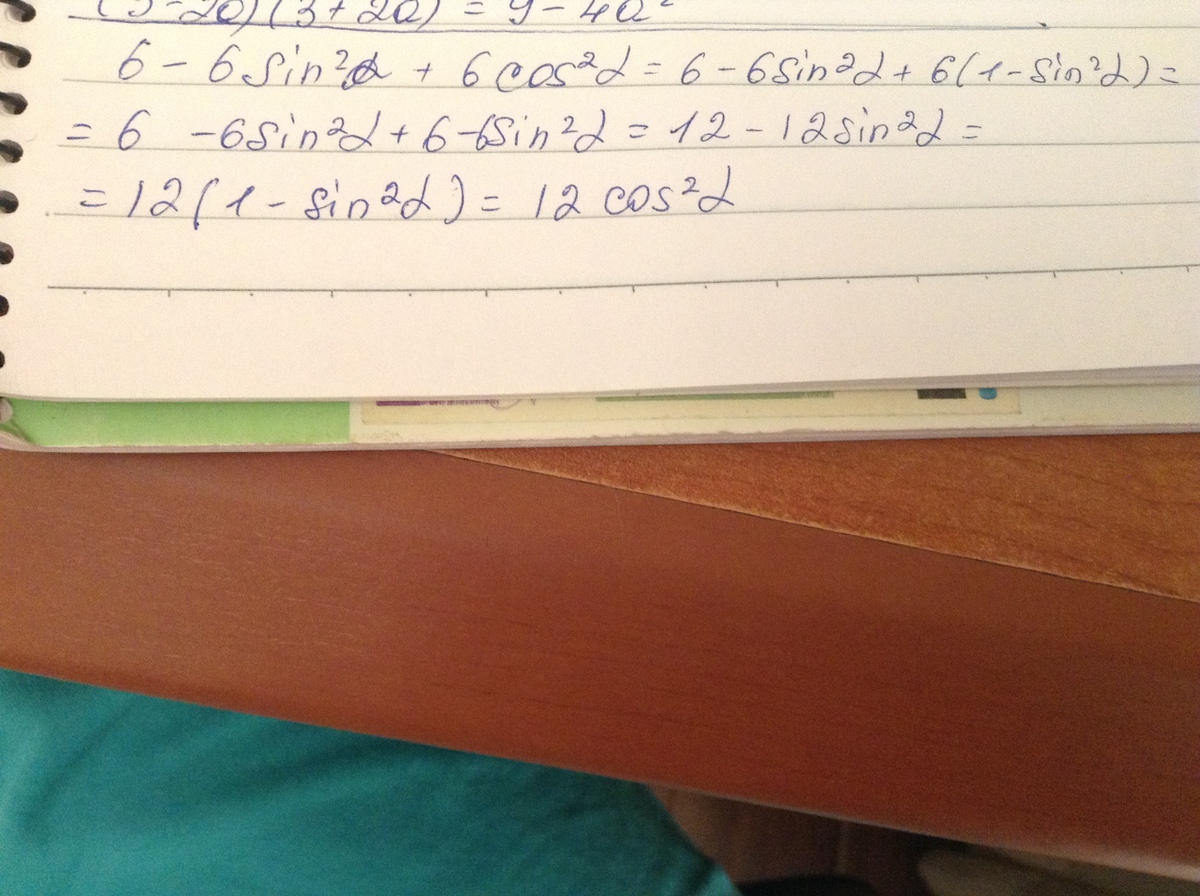 (3-2a)(3+2a) = 9-4a²
6 - 6 sin²α + 6 cos²α = 6 - 6 sin²α + 6(1 - sin²α) =
= 6 - 6 sin²α + 6 - 6 sin²α = 12 - 12 sin²α =
= 12(1 - sin²α) = 12 cos²α